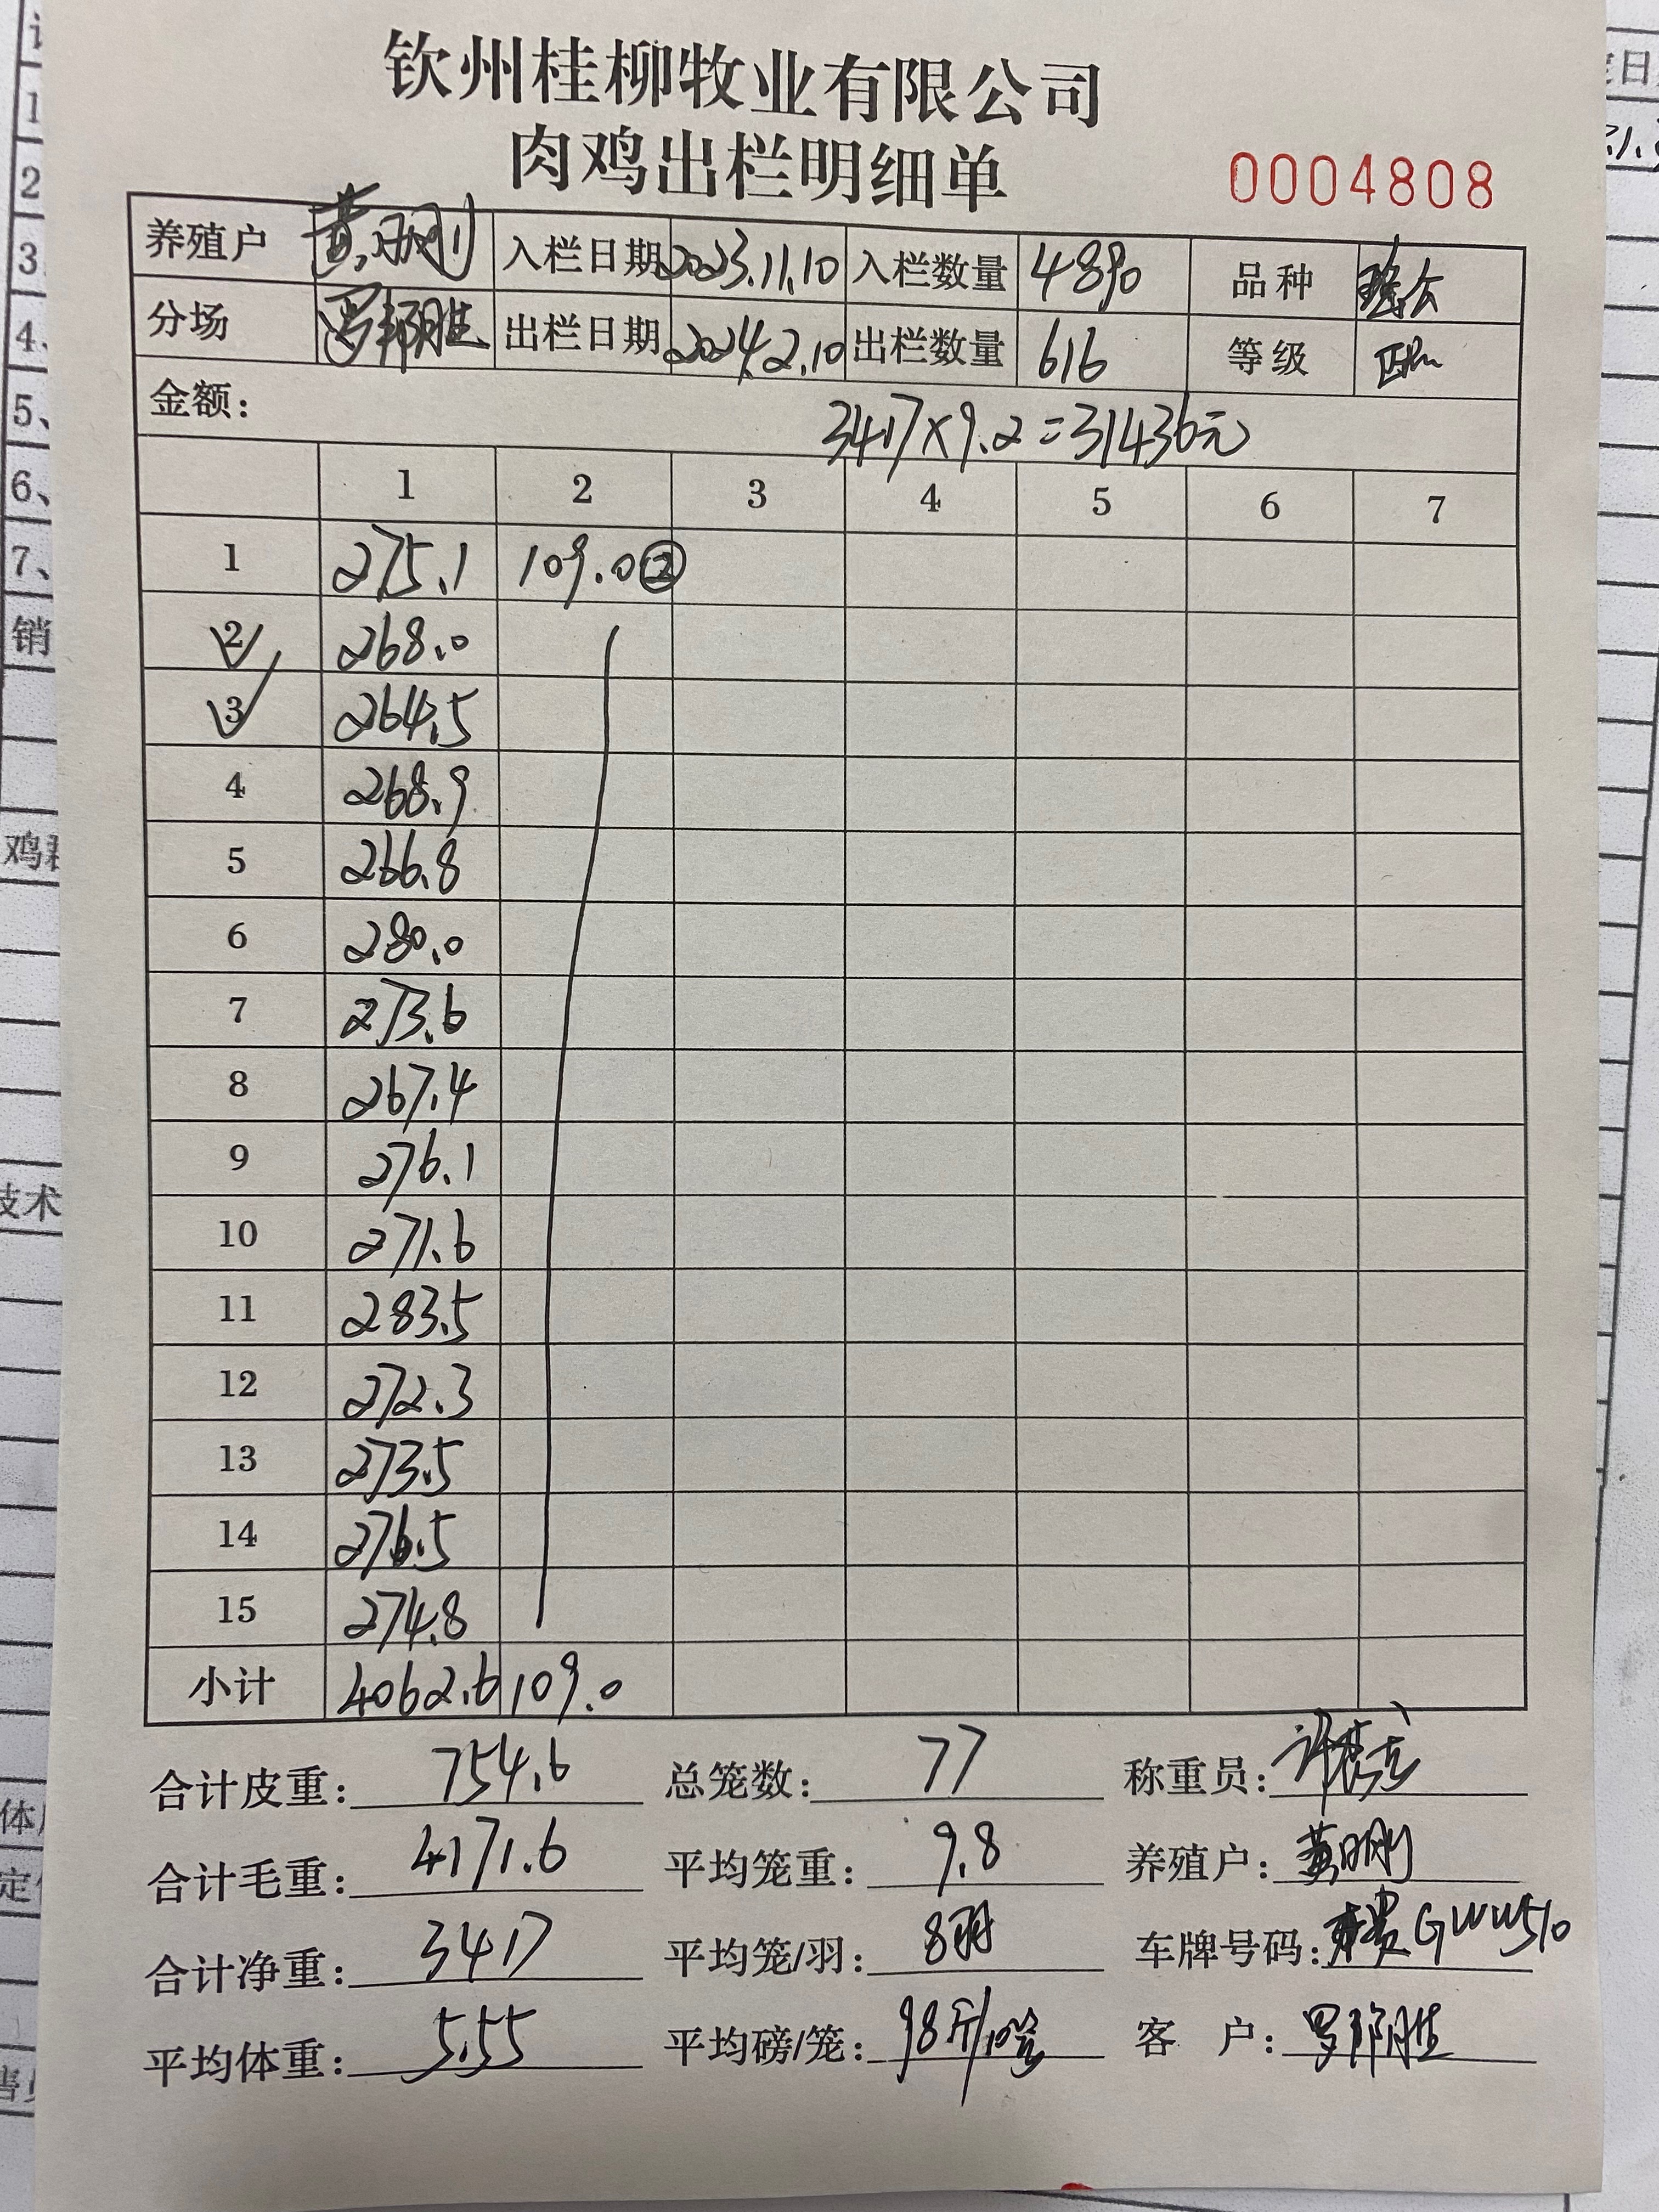 钦州桂柳牧业有限公司
肉鸡出栏明细单
0004808
养殖户 黄明刚 入栏日期 2023.11.10 入栏数量 4890 品种 瑶公
分场 罗邦胜 出栏日期 2024.2.10 出栏数量 616 等级
金额： 3417×9.2=31436元
1 2 3 4 5 6 7
1 275.1 109.0②
2 268.0
3 264.5
4 268.9
5 266.8
6 280.0
7 273.6
8 267.4
9 276.1
10 271.6
11 283.5
12 272.3
13 273.5
14 276.5
15 274.8
小计 4062.6 109.0
合计皮重： 754.6 总笼数： 77 称重员：
合计毛重： 4171.6 平均笼重： 9.8 养殖户： 黄明刚
合计净重： 3417 平均笼/羽： 8羽 车牌号码： 贵GWW510
平均体重： 5.55 平均磅/笼： 98斤/10笼 客 户： 罗邦胜